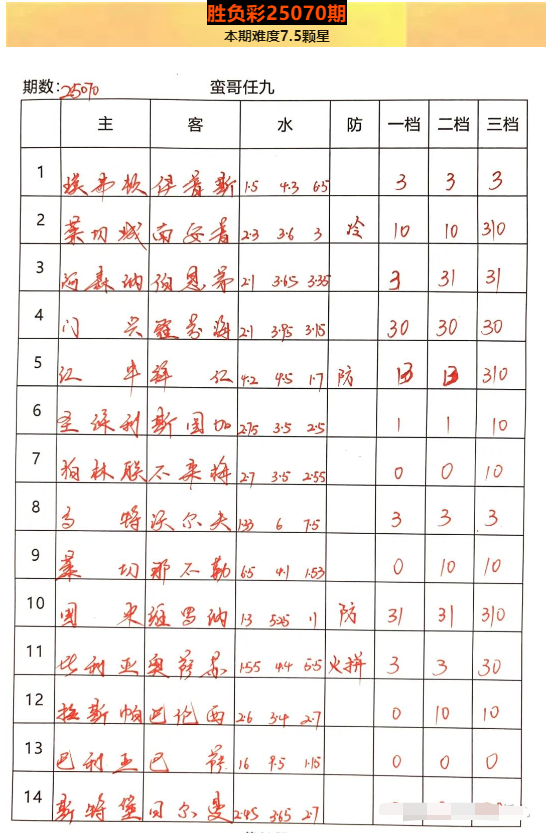 胜负彩25070期
本期难度7.5颗星
期数:25070 蛮哥任九
主 客 水 防 一档 二档 三档
1 埃弗顿 伊普斯 1.5 4.3 6.5 3 3 3
2 莱切城 南安普 2.3 3.6 3 冷 10 10 310
3 阿森纳 伯恩茅 2.1 3.65 3.35 3 31 31
4 门兴 霍芬海 2.1 3.95 3.15 30 30 30
5 红牛 拜仁 4.2 4.5 1.7 防 13 13 310
6 圣保利 斯图加 2.75 3.5 2.5 1 1 10
7 柏林联 不来梅 2.7 3.5 2.55 0 0 10
8 多特 沃尔夫 1.33 6 7.5 3 3 3
9 莱切 那不勒 6.5 4.1 1.53 0 10 10
10 国米 维罗纳 1.3 5.25 11 防 31 31 310
11 比利亚 奥萨苏 1.55 4.4 5.5 火拼 3 3 30
12 拉斯帕 巴伦西 2.6 3.4 2.7 0 10 10
13 巴利亚 巴萨 16 9.5 1.15 0 0 0
14 斯特堡 日尔曼 2.45 3.65 2.7